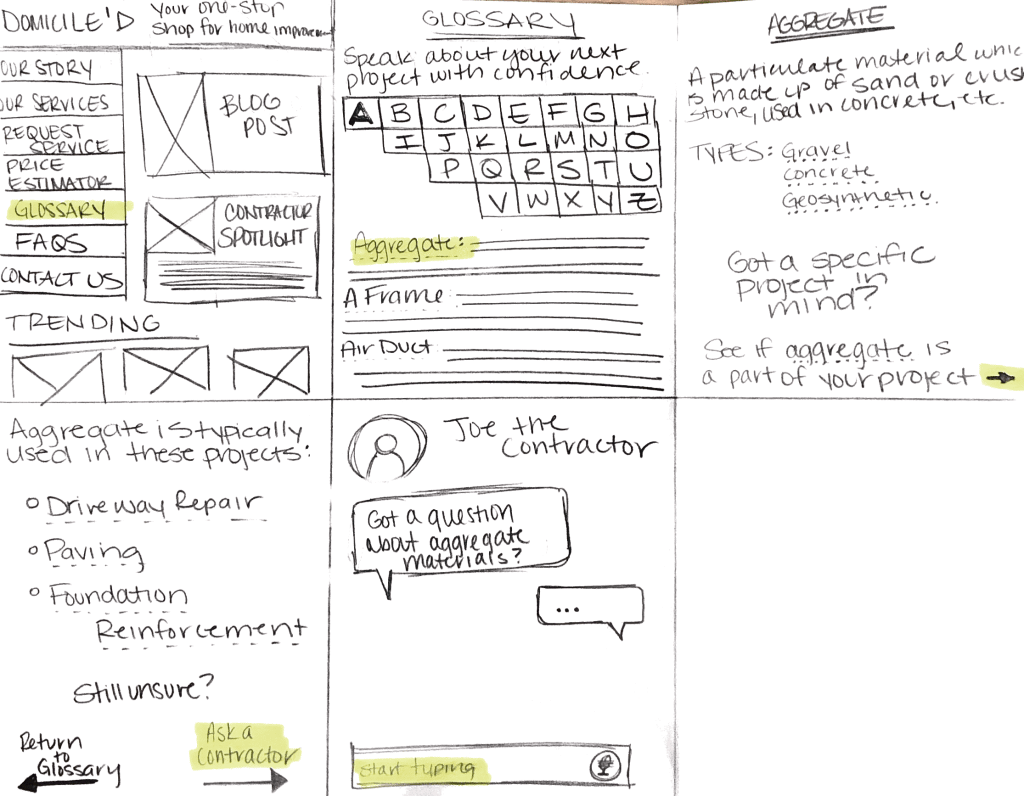 DOMICILE'D
Your one-stop
shop for home improvement
OUR STORY
OUR SERVICES
REQUEST
SERVICE
PRICE
ESTIMATOR
GLOSSARY
FAQS
CONTACT US
BLOG
POST
CONTRACTOR
SPOTLIGHT
TRENDING
GLOSSARY
Speak about your next
project with confidence.
A B C D E F G H
I J K L M N O
P Q R S T U
V W X Y Z
Aggregate:
A Frame
Air Duct
AGGREGATE
A particulate material which
is made up of sand or crush
stone, used in concrete, etc.
TYPES: Gravel
Concrete
Geosynthetic
Got a specific
project in
mind?
See if aggregate is
a part of your project
Aggregate is typically
used in these projects:
Driveway Repair
Paving
Foundation
Reinforcement
Still unsure?
Return
to
Glossary
Ask a
Contractor
Joe the
Contractor
Got a question
about aggregate
materials?
...
Start typing